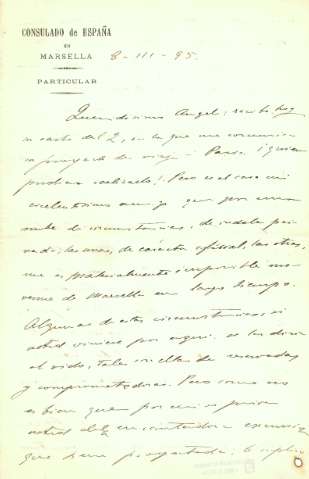 CONSULADO de ESPAÑA
EN
MARSELLA
PARTICULAR
8-III-95.
Queridísimo Angel: recibo hoy
su carta del 2, en la que me comunica
su proyecto de viaje a París. ¡quién
pudiera realizarlo! Pero es el caso mi
excelentísimo amigo que por una
nube de circunstancias, de índole pri-
vada, las unas, de carácter oficial, las otras,
me es materialmente imposible mo-
verme de Marsella en largo tiempo.
Algunas de estas circunstancias si
usted viniese por aquí se las diría
al oído, tales son ellas de reservadas
y comprometedoras. Pero como no
es bien que por mi se prive
usted de la encantadora excursión
que tiene proyectada, le suplico